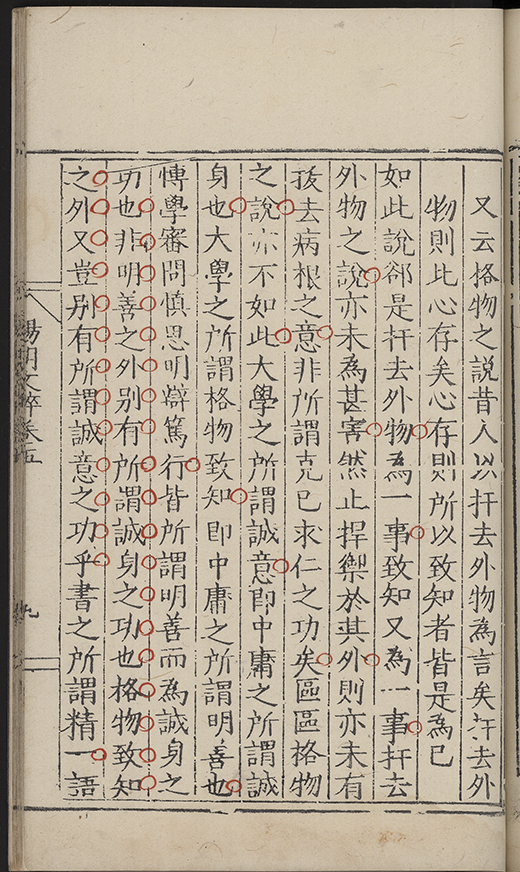 又云格物之說昔人以扞去外物為言矣扞去外
物則此心存矣心存則所以致知者皆是為已
如此說郤是扞去外物為一事致知又為一事扞去
外物之說亦未為甚害然止捍禦於其外則亦未有
拔去病根之意非所謂克已求仁之功矣區區格物
之說亦不如此大學之所謂誠意即中庸之所謂誠
身也大學之所謂格物致知即中庸之所謂明善也
博學審問慎思明辯篤行皆所謂明善而為誠身之
功也非明善之外別有所謂誠身之功也格物致知
之外又豈別有所謂誠意之功乎書之所謂精一語
陽明文粹卷五
九